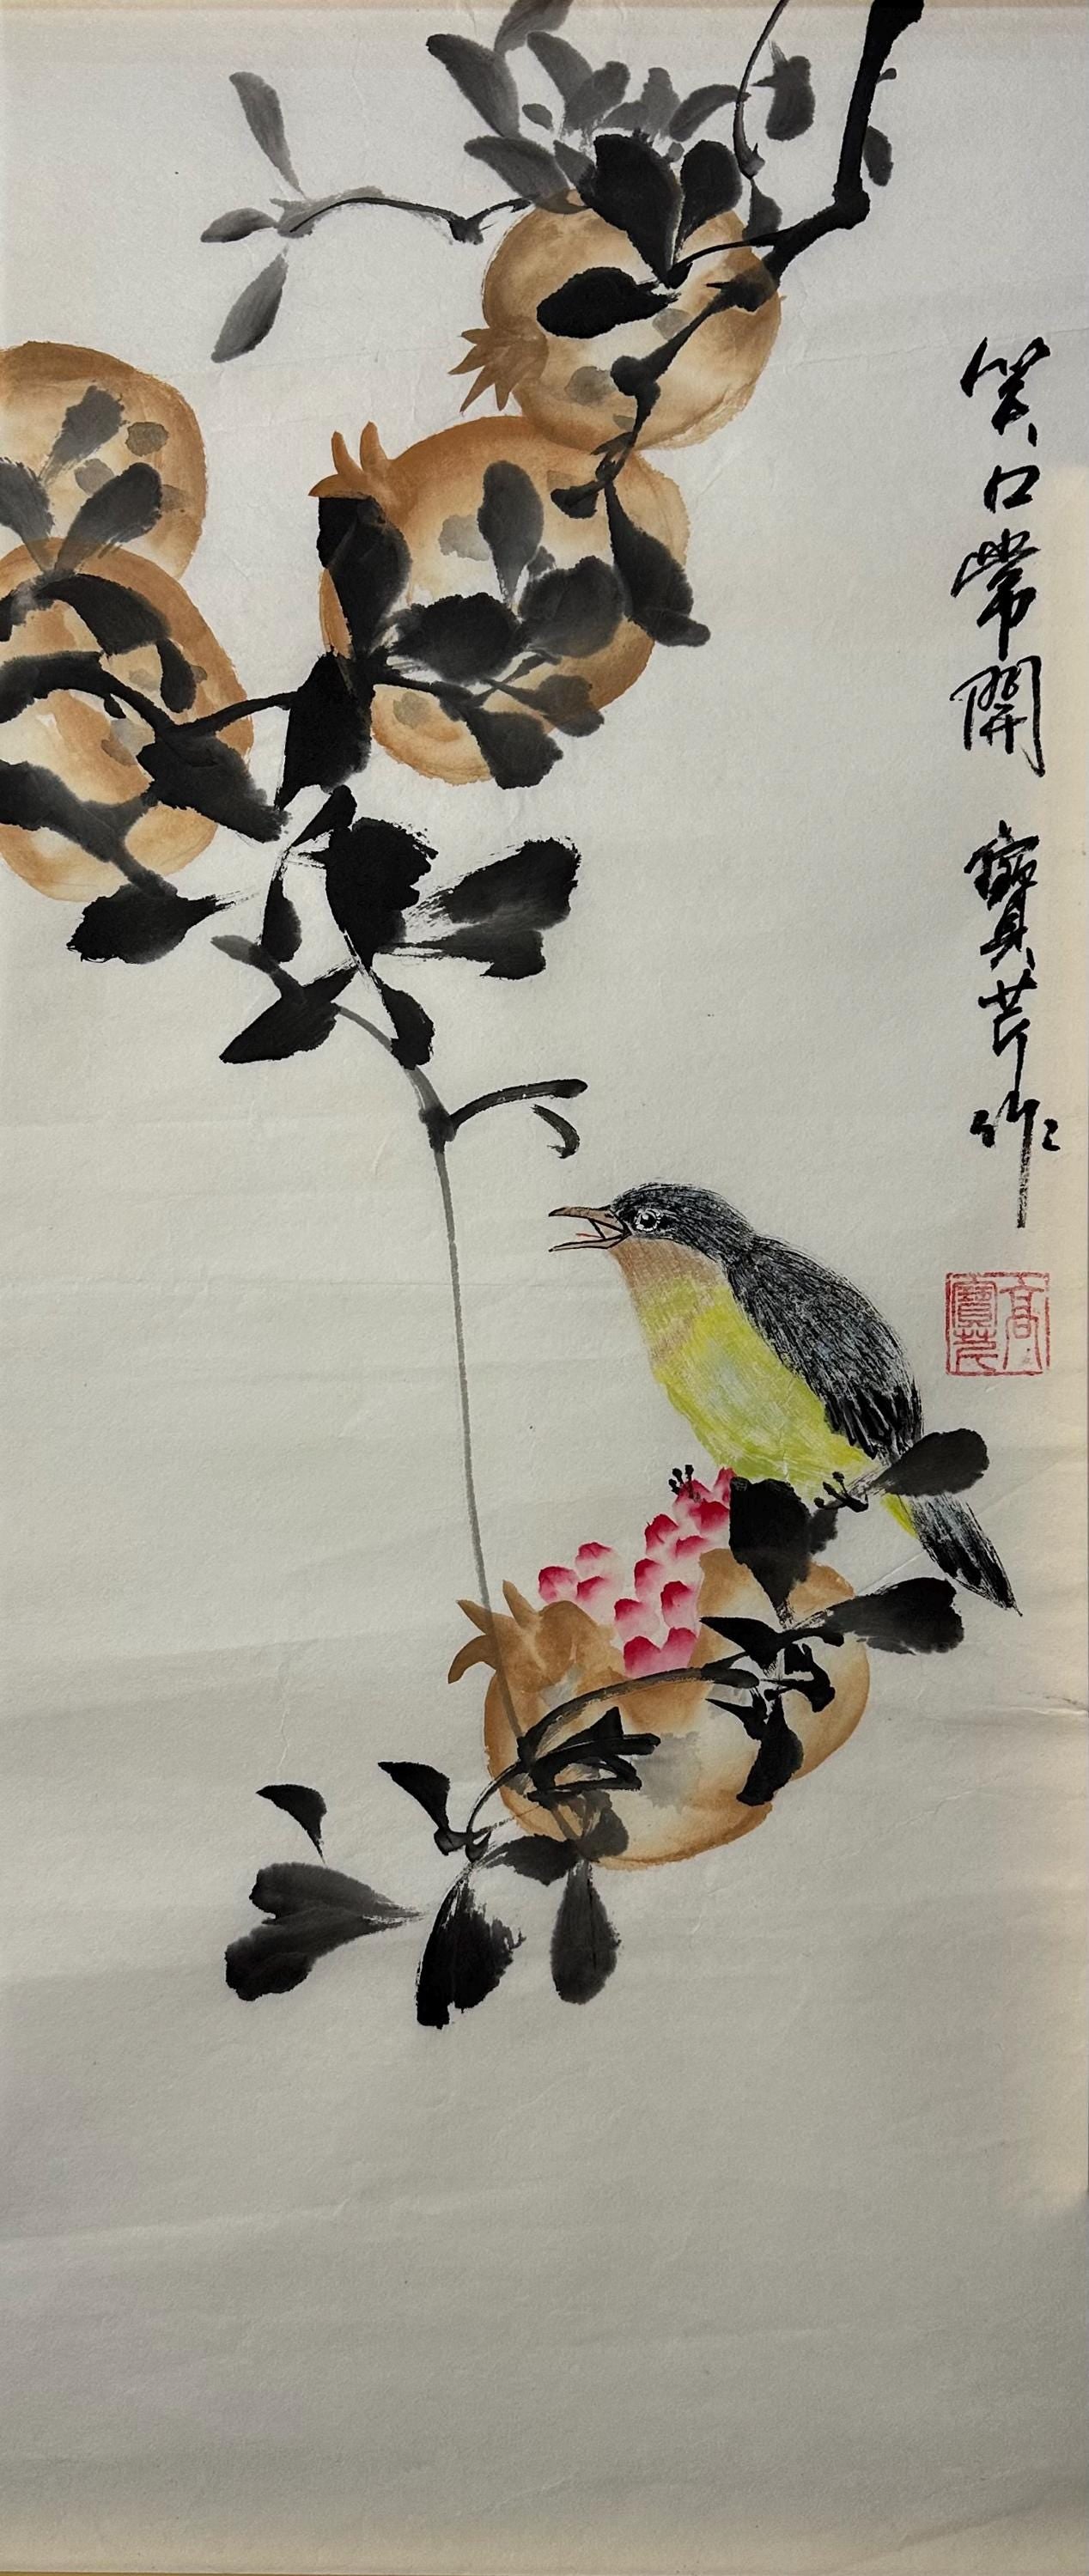 笑口常開 寶芹作
高寶芹